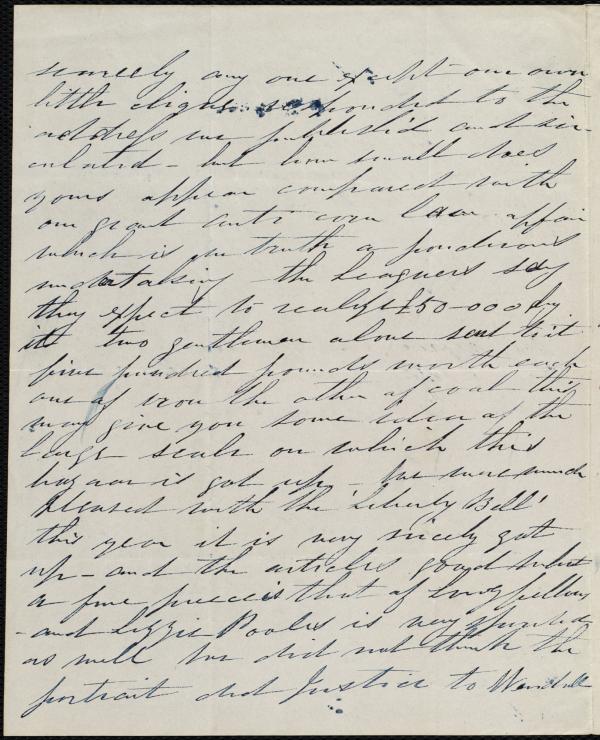 scarcely any one except our own
little clique responded to the
address we publish'd and cir-
culated - but how small does
yours appear compared with
our great anti corn law affair
which is in truth a ponderous
undertaking the Leaguers say
they expect to realize £50-000 by
it two gentlemen alone sent to it
five hundred pounds worth each
one of iron the other of coal this
may give you some idea of the
large scale on which this
bazaar is got up - We were much
pleased with the 'Liberty Bell'
this year it is very nicely got
up - and the articles good what
a fine piece is that of Longfellow
- and Lizzie Pooles is very spirited
as well we did not think the
portrait did Justice to Wendell